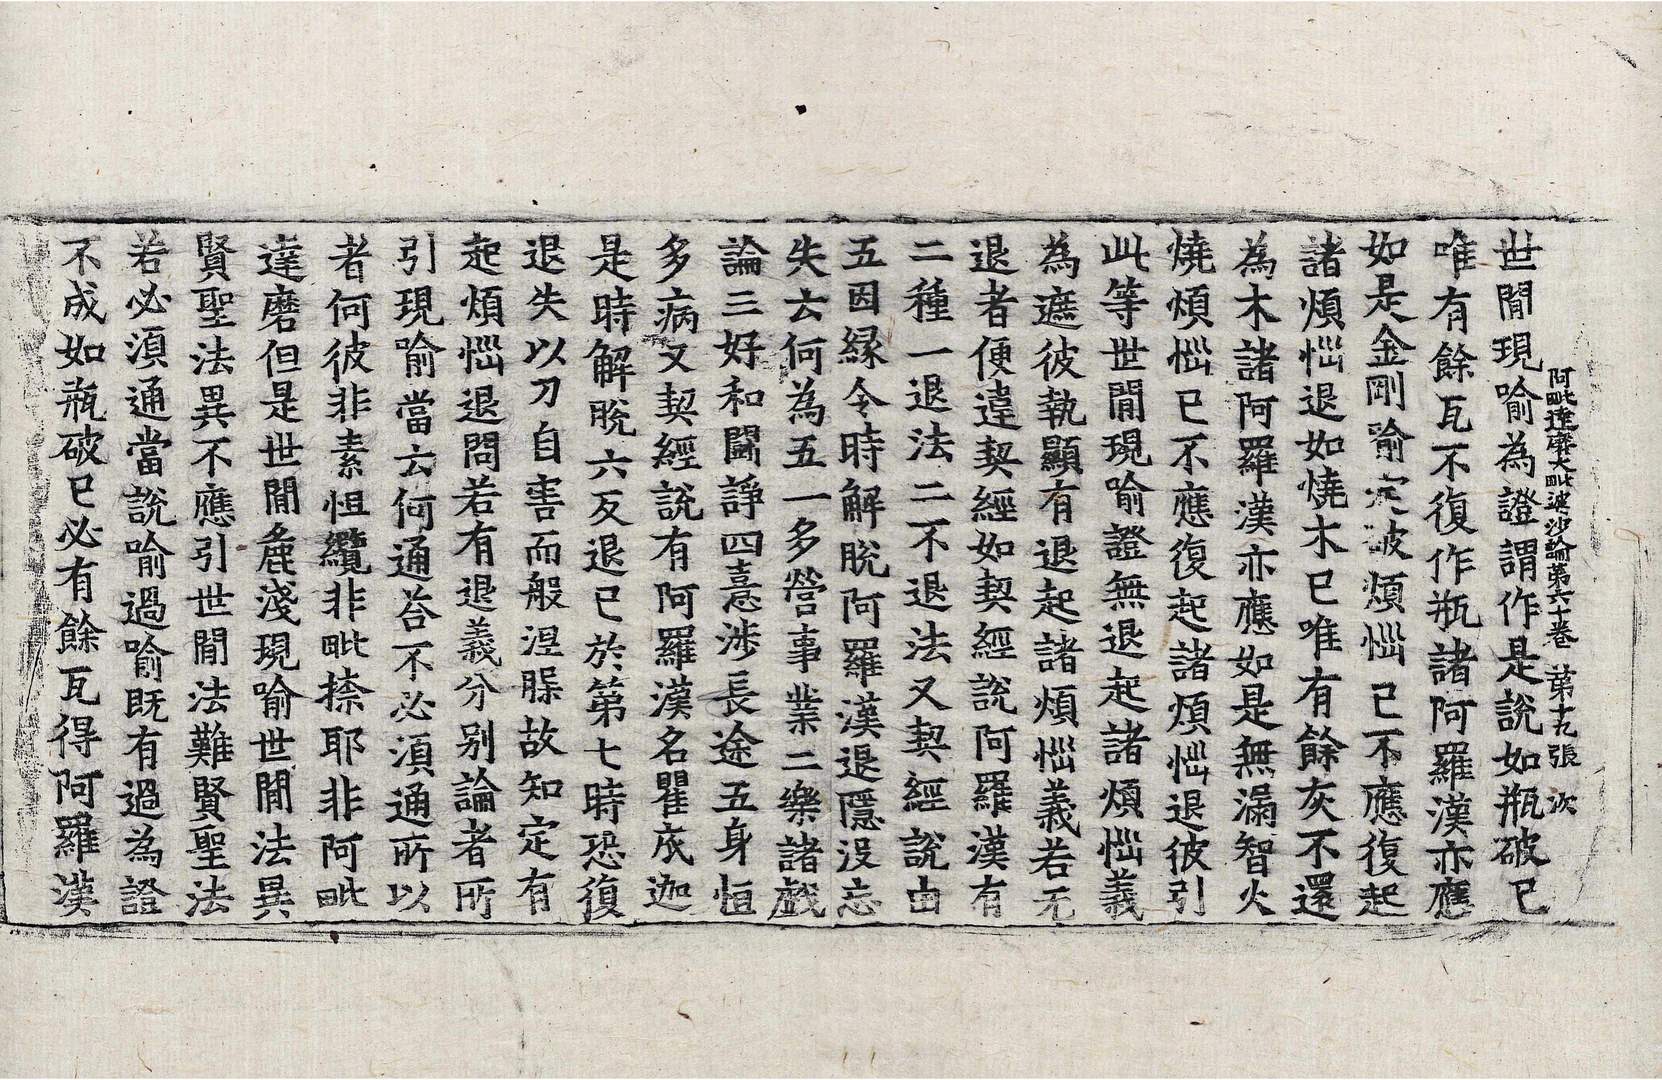 阿毗達磨大毗婆沙論第六十卷 第十九張 次
世閒現喻為證謂作是說如瓶破已
唯有餘瓦不復作瓶諸阿羅漢亦應
如是金剛喻定破煩惱已不應復起
諸煩惱退如燒木已唯有餘灰不還
為木諸阿羅漢亦應如是無漏智火
燒煩惱已不應復起諸煩惱退彼引
此等世閒現喻證無退起諸煩惱義
為遮彼執顯有退起諸煩惱義若无
退者便違契經如契經說阿羅漢有
二種一退法二不退法又契經說由
五因緣令時解脫阿羅漢退隱沒忘
失云何為五一多營事業二樂諸戲
論三好和鬪諍四憙涉長途五身恒
多病又契經說有阿羅漢名瞿底迦
是時解脫六反退已於第七時恐復
退失以刀自害而般涅槃故知定有
起煩惱退問若有退義分別論者所
引現喻當云何通荅不必須通所以
者何彼非素怛纜非毗捺耶非阿毗
達磨但是世閒麁淺現喻世閒法異
賢聖法異不應引世閒法難賢聖法
若必須通當說喻過喻既有過為證
不成如瓶破已必有餘瓦得阿羅漢